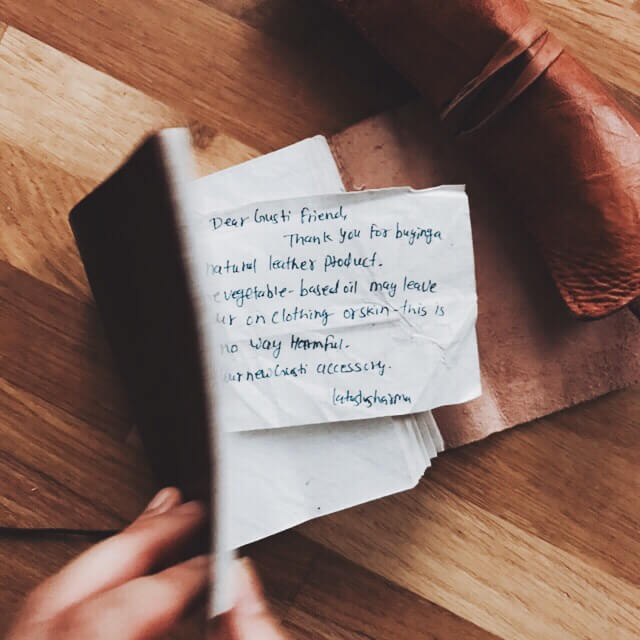 Dear Gusti friend,
Thank you for buying a
natural leather product.
vegetable-based oil may leave
on clothing or skin - this is
no way Harmful.
new Gusti accessory.